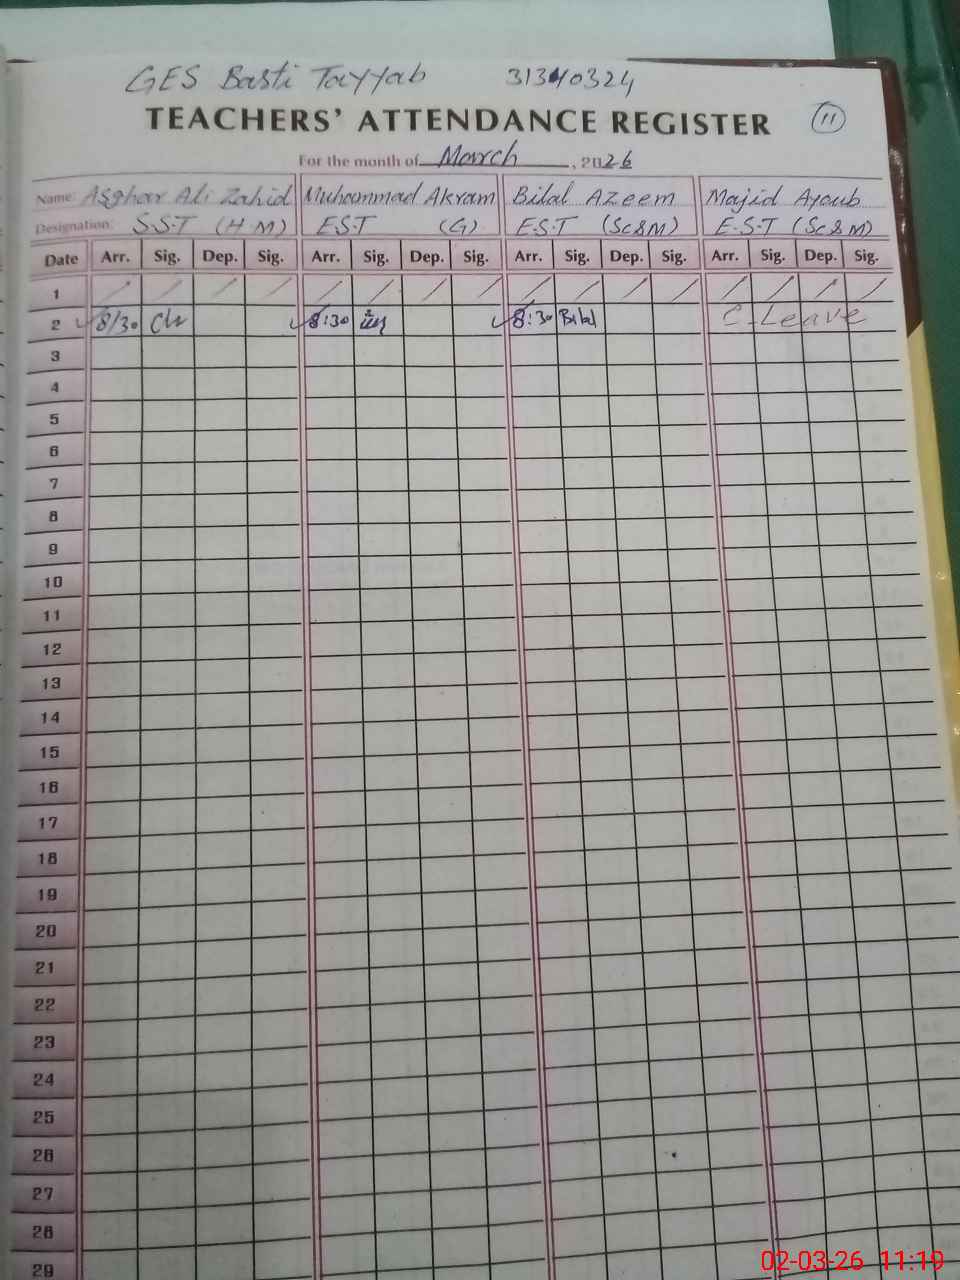 GES Basti Tayyab 31340324
TEACHERS' ATTENDANCE REGISTER 11
For the month of March, 2026
Name: Asghar Ali Zahid Muhammad Akram Bilal Azeem Majid Ayoub
Designation: S.S.T (H M) E.S.T (G) E.S.T (Sc&M) E.S.T (Sc&M)
Date Arr. Sig. Dep. Sig. Arr. Sig. Dep. Sig. Arr. Sig. Dep. Sig. Arr. Sig. Dep. Sig.
1
2 8/30 8:30 8:30 Bilal C-Leave
3
4
5
6
7
8
9
10
11
12
13
14
15
16
17
18
19
20
21
22
23
24
25
26
27
28
29
02-03-26 11:19